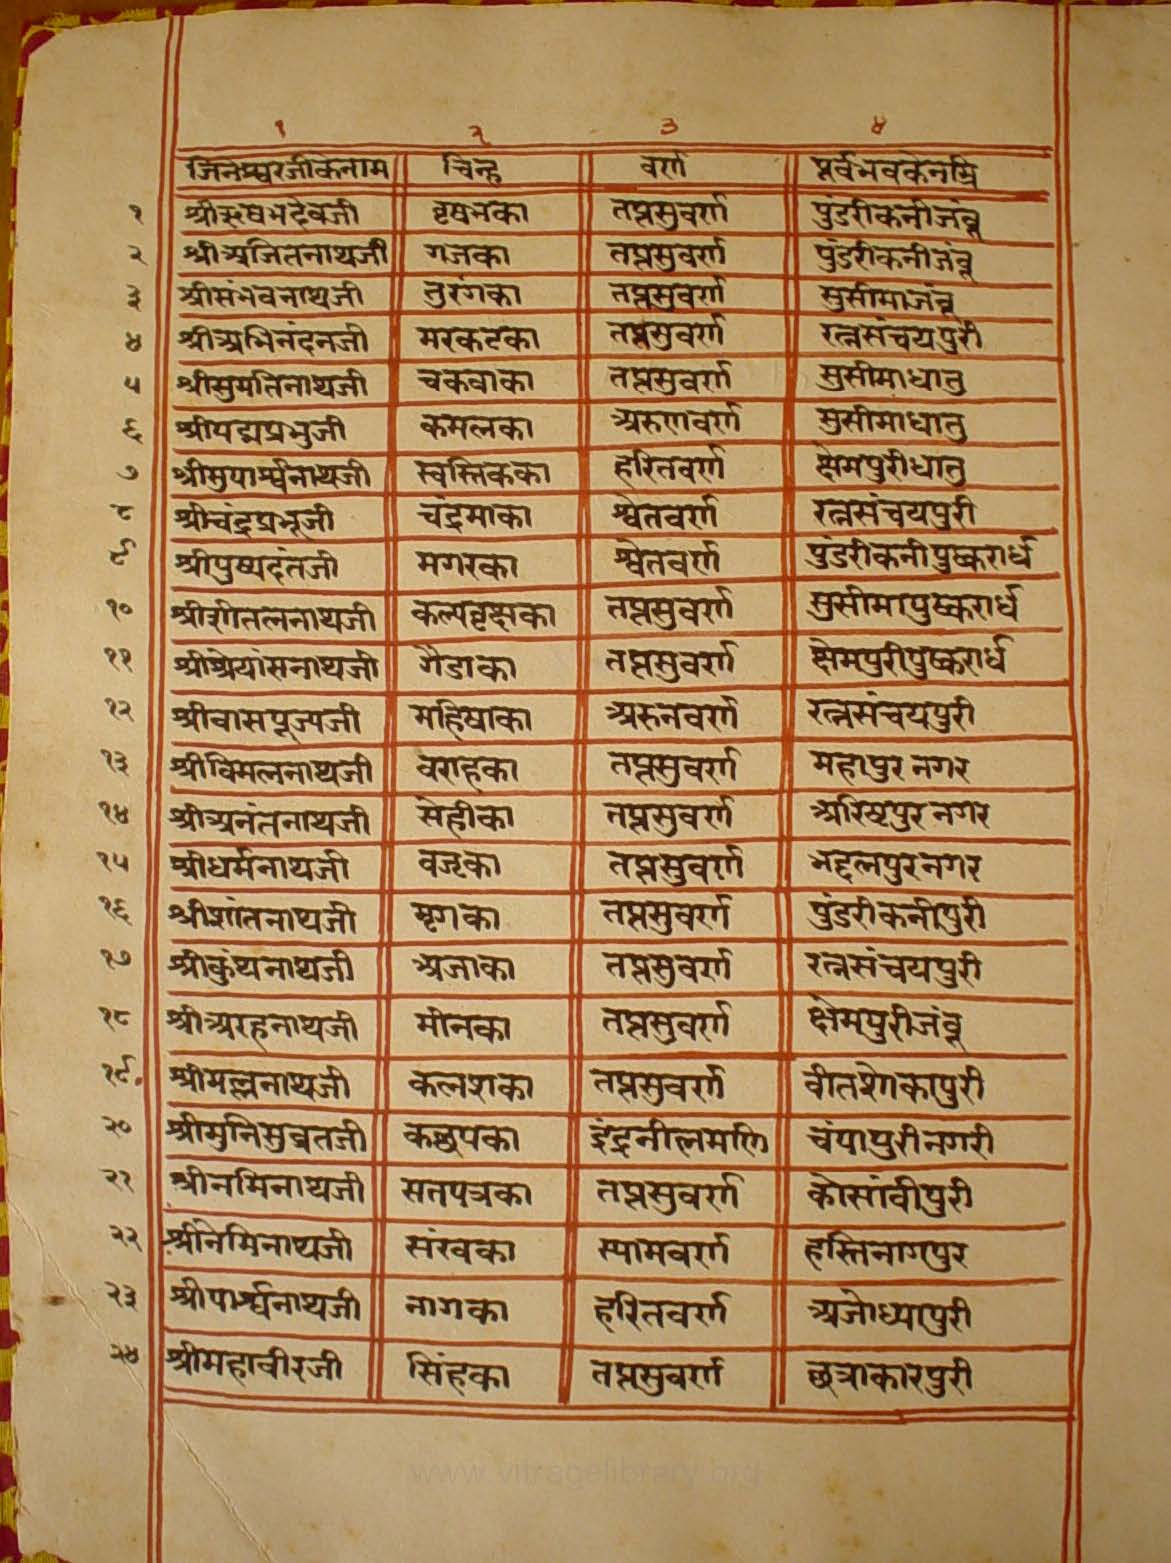 १ २ ३ ४
जिनेश्वरजीकेनाम चिन्ह वर्ण पूर्वभवकेनग्रि
१ श्रीरूषभदेवजी वृषभका तप्तसुवर्ण पुंडरीकनीजंबू
२ श्रीअजितनाथजी गजका तप्तसुवर्ण पुंडरीकनीजंबू
३ श्रीसंभवनाथजी तुरंगका तप्तसुवर्ण सुसीमाजंबू
४ श्रीअभिनंदनजी मरकटका तप्तसुवर्ण रत्नसंचयपुरी
५ श्रीसुमतिनाथजी चकवाका तप्तसुवर्ण सुसीमाधातु
६ श्रीपद्मप्रभुजी कमलका अरुणवर्ण सुसीमाधातु
७ श्रीसुपार्श्वनाथजी स्वस्तिकका हरितवर्ण क्षेमपुरीधातु
८ श्रीचंद्रप्रभूजी चंद्रमाका श्वेतवर्ण रत्नसंचयपुरी
९ श्रीपुष्पदंतजी मगरका श्वेतवर्ण पुंडरीकनीपुष्करार्ध
१० श्रीशीतलनाथजी कल्पवृक्षका तप्तसुवर्ण सुसीमापुष्करार्ध
११ श्रीश्रेयांसनाथजी गैंडाका तप्तसुवर्ण क्षेमपुरीपुष्करार्ध
१२ श्रीवासपूज्यजी महिषाका अरुनवर्ण रत्नसंचयपुरी
१३ श्रीविमलनाथजी वराहका तप्तसुवर्ण महापुरनगर
१४ श्रीअनंतनाथजी सेहीका तप्तसुवर्ण अरिष्टपुरनगर
१५ श्रीधर्मनाथजी वज्रका तप्तसुवर्ण भद्दलपुरनगर
१६ श्रीशांतनाथजी मृगका तप्तसुवर्ण पुंडरीकनीपुरी
१७ श्रीकुंथनाथजी अजाका तप्तसुवर्ण रत्नसंचयपुरी
१८ श्रीअरहनाथजी मीनका तप्तसुवर्ण क्षेमपुरीजंबू
१९ श्रीमल्लनाथजी कलशका तप्तसुवर्ण वीतशोकापुरी
२० श्रीमुनिसुव्रतजी कछुपका इंद्रनीलमणि चंपापुरीनगरी
२१ श्रीनमिनाथजी सतपत्रका तप्तसुवर्ण कोसांबीपुरी
२२ श्रीनेमिनाथजी संखका स्यामवर्ण हस्तिनागपुर
२३ श्रीपार्श्वनाथजी नागका हरितवर्ण अजोध्यापुरी
२४ श्रीमहावीरजी सिंहका तप्तसुवर्ण छत्राकारपुरी
www.vitragelibrary.org